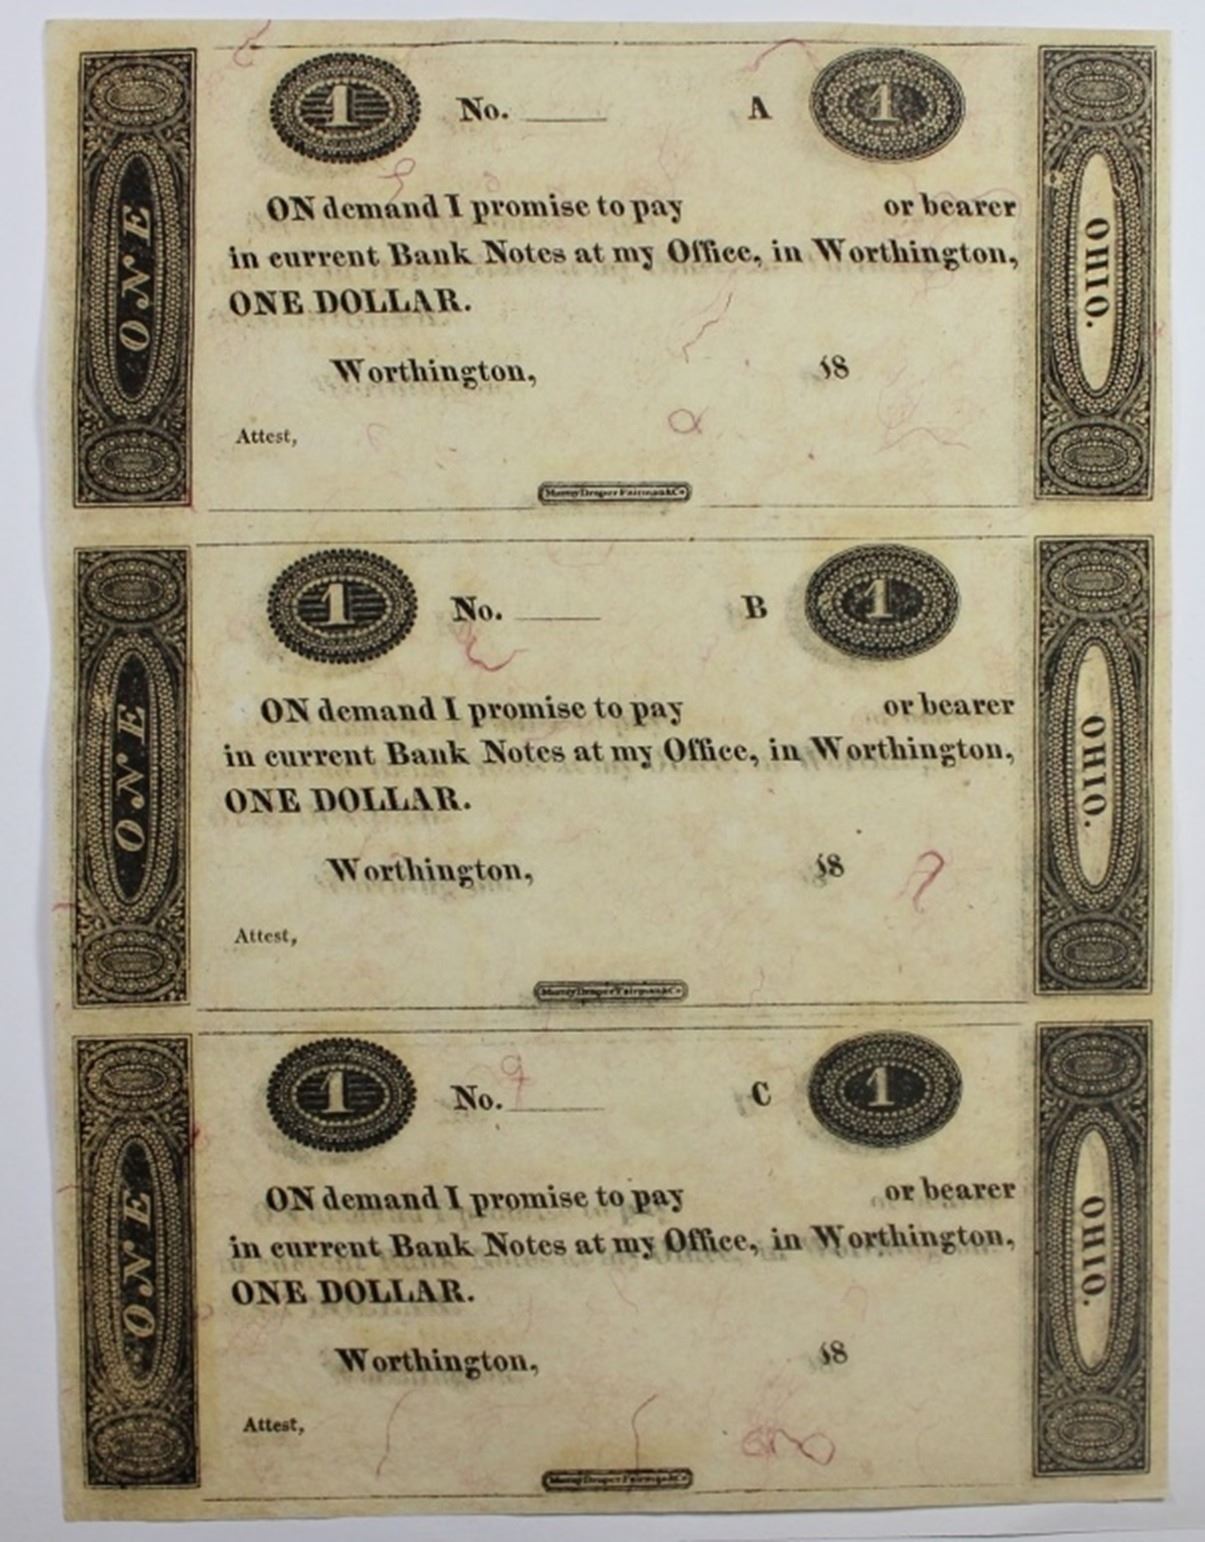 1 No. ____ A 1
ONE
OHIO.
ON demand I promise to pay or bearer
in current Bank Notes at my Office, in Worthington,
ONE DOLLAR.
Worthington, 18
Attest,
Murray Draper Fairman & Co
1 No. ____ B 1
ONE
OHIO.
ON demand I promise to pay or bearer
in current Bank Notes at my Office, in Worthington,
ONE DOLLAR.
Worthington, 18
Attest,
Murray Draper Fairman & Co
1 No. ____ C 1
ONE
OHIO.
ON demand I promise to pay or bearer
in current Bank Notes at my Office, in Worthington,
ONE DOLLAR.
Worthington, 18
Attest,
Murray Draper Fairman & Co